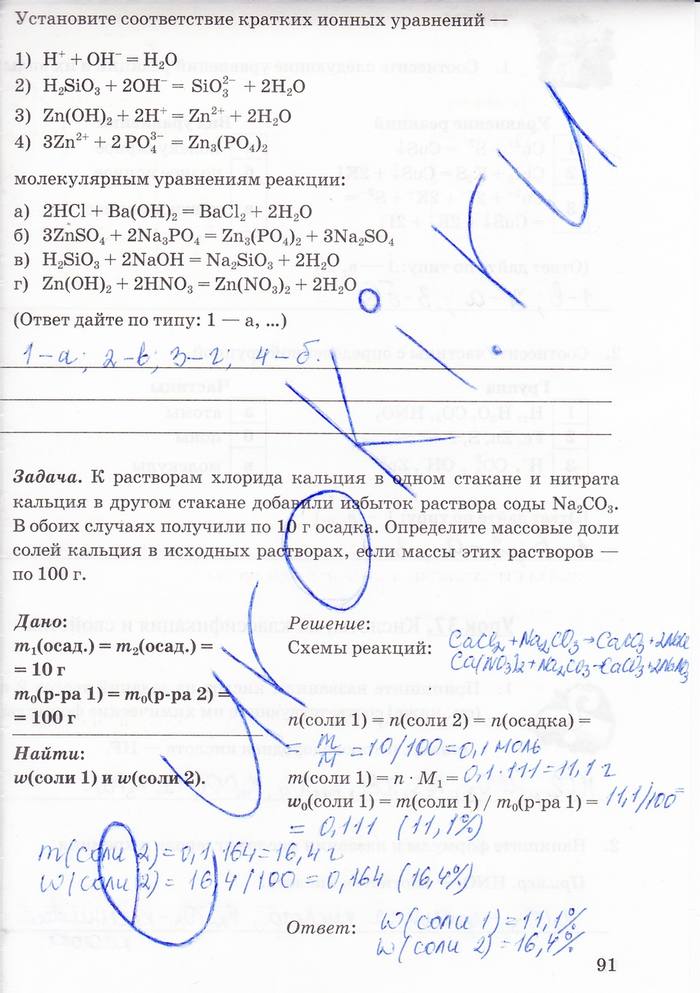 Установите соответствие кратких ионных уравнений —
1) H⁺ + OH⁻ = H₂O
2) H₂SiO₃ + 2OH⁻ = SiO₃²⁻ + 2H₂O
3) Zn(OH)₂ + 2H⁺ = Zn²⁺ + 2H₂O
4) 3Zn²⁺ + 2PO₄³⁻ = Zn₃(PO₄)₂
молекулярным уравнениям реакции:
а) 2HCl + Ba(OH)₂ = BaCl₂ + 2H₂O
б) 3ZnSO₄ + 2Na₃PO₄ = Zn₃(PO₄)₂ + 3Na₂SO₄
в) H₂SiO₃ + 2NaOH = Na₂SiO₃ + 2H₂O
г) Zn(OH)₂ + 2HNO₃ = Zn(NO₃)₂ + 2H₂O
(Ответ дайте по типу: 1 — а, ...)
1-а; 2-в; 3-г; 4-б.
Задача. К растворам хлорида кальция в одном стакане и нитрата
кальция в другом стакане добавили избыток раствора соды Na₂CO₃.
В обоих случаях получили по 10 г осадка. Определите массовые доли
солей кальция в исходных растворах, если массы этих растворов —
по 100 г.
Дано:
m₁(осад.) = m₂(осад.) =
= 10 г
m₀(р-ра 1) = m₀(р-ра 2) =
= 100 г
Найти:
w(соли 1) и w(соли 2).
Решение:
Схемы реакций: CaCl₂ + Na₂CO₃ → CaCO₃ + 2NaCl
Ca(NO₃)₂ + Na₂CO₃ → CaCO₃ + 2NaNO₃
n(соли 1) = n(соли 2) = n(осадка) =
= m/M = 10/100 = 0,1 моль
m(соли 1) = n · M₁ = 0,1 · 111 = 11,1 г
w₀(соли 1) = m(соли 1) / m₀(р-ра 1) = 11,1/100 =
= 0,111 (11,1%)
m(соли 2) = 0,1 · 164 = 16,4 г
w(соли 2) = 16,4/100 = 0,164 (16,4%)
Ответ: w(соли 1) = 11,1%
w(соли 2) = 16,4%
91
UROKI.KU